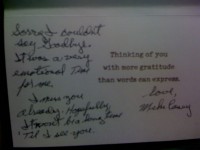 Sorry I couldn't
say Goodbye.
It was a very
emotional time
for me.
you
already. Hopefully
it won't be long
'til I see you.
Thinking of you
with more gratitude
than words can express.
Love,